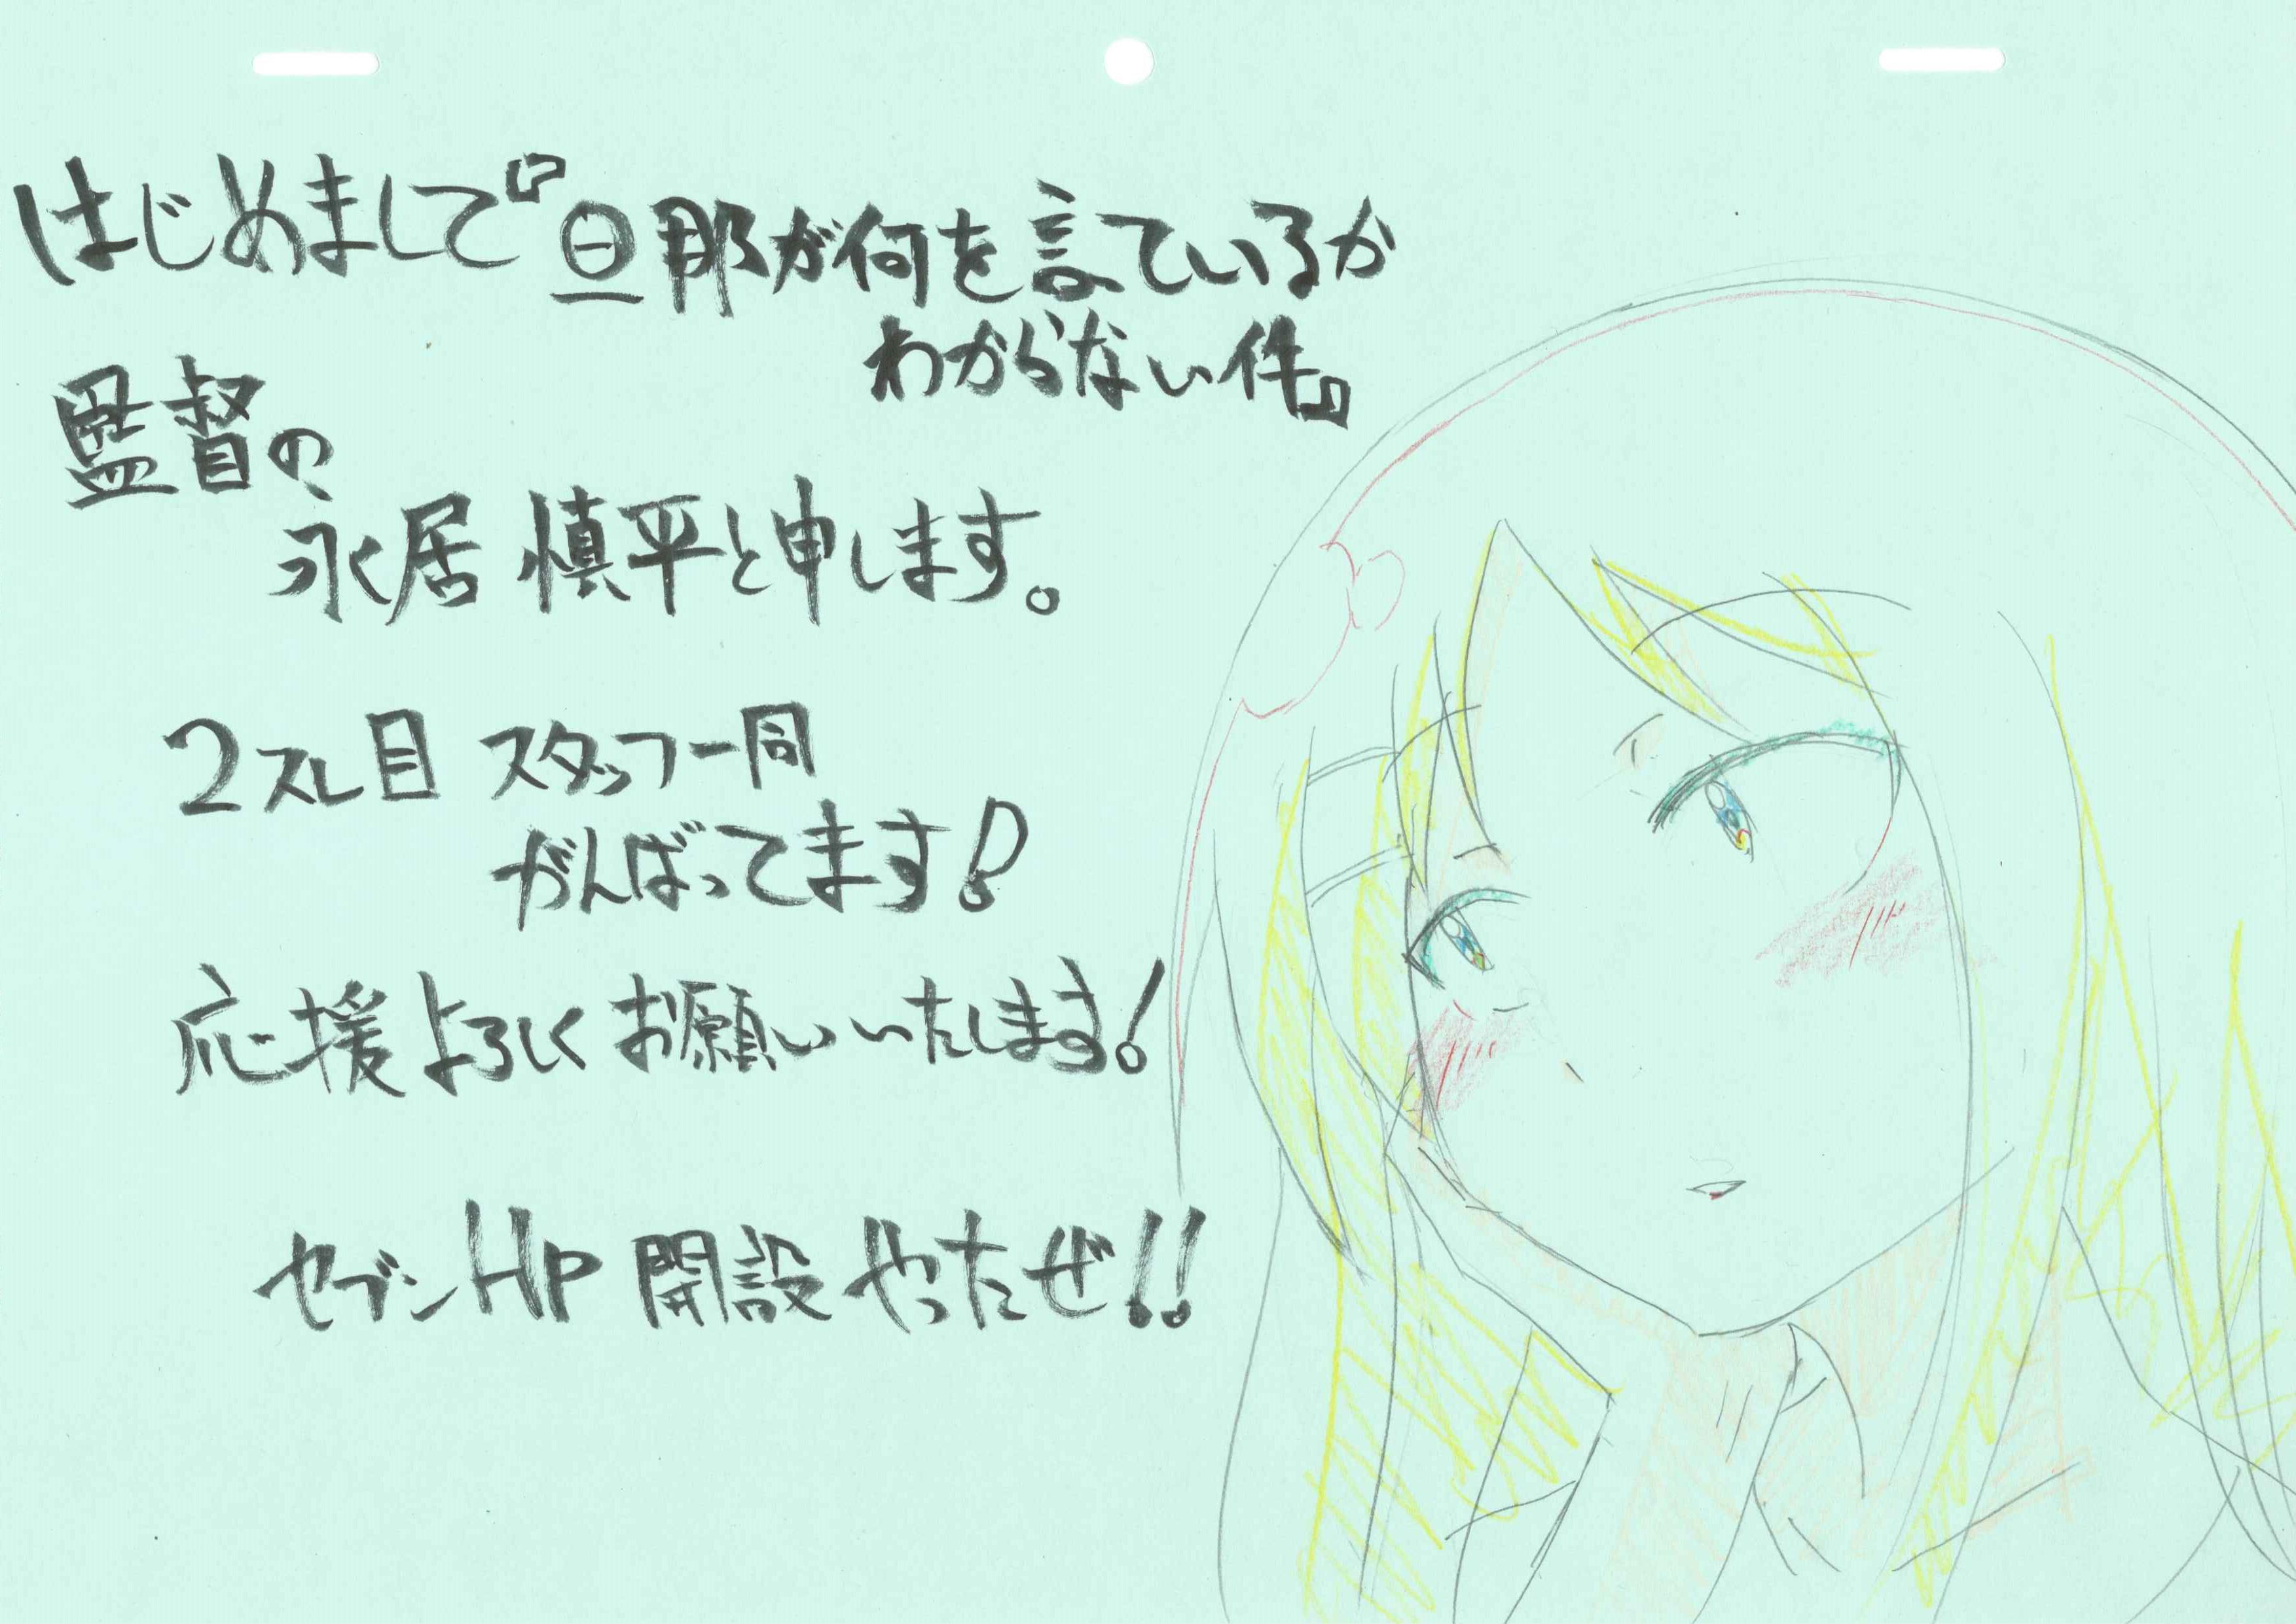 はじめまして『旦那が何を言ているか
わからない件』
監督の
永居 慎平と申します。
2スレ目 スタッフ一同
がんばってます!
応援よろしくお願いいたします!
セブンHP 開設やったぜ!!